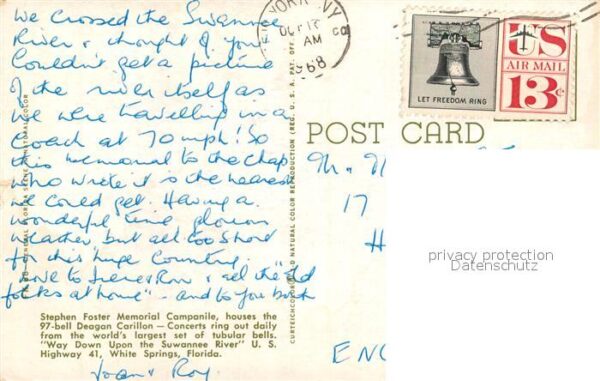 We crossed the Swannee
River & thought of you!
Couldn't get a picture
of the river itself as
we were travelling in a
coach at 70 mph! So
this memorial to the chap
who wrote it is the nearest
we could get. Having a
wonderful time, glorious
weather, but all too short
for this huge country.
Love to Irene & Ron & all the "old
folks at home" - and to you both
Joan & Roy.
Stephen Foster Memorial Campanile, houses the
97-bell Deagan Carillon — Concerts ring out daily
from the world's largest set of tubular bells.
"Way Down Upon the Suwannee River" U. S.
Highway 41, White Springs, Florida.
NATURAL COLOR REPRODUCTION (REG. U. S. PAT. OFF.
YORK, NY
AM
1968
LET FREEDOM RING
US
AIR MAIL
13¢
POST CARD
17
H
ENG
privacy protection
Datenschutz